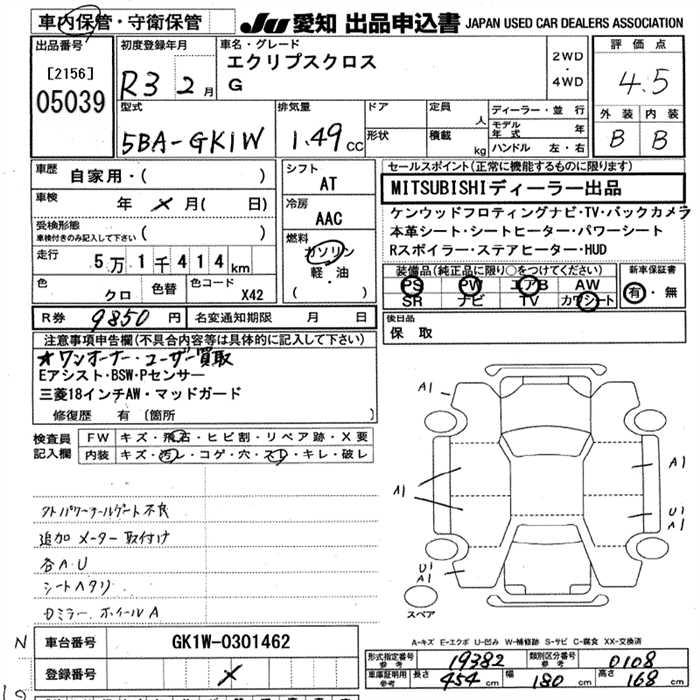 車内保管・守衛保管
JU 愛知 出品申込書 JAPAN USED CAR DEALERS ASSOCIATION
出品番号
[2156]
05039
初度登録年月
R3 2月
車名・グレード
エクリプスクロス
G
2WD
・
4WD
評価点
4.5
外装 内装
B B
型式
5BA-GK1W
排気量
1.49 CC
ドア
形状
定員 人
積載 kg
ディーラー・並行
モデル年式 年
ハンドル 左・右
車歴
自家用・( )
車検 年 × 月( 日)
受検形態
車検付きのみ記入して下さい ( )
走行
5万1千414km
色 クロ
色替
色コード X42
シフト
AT
冷房
AAC
燃料
ガソリン
軽・油
( )
セールスポイント(正常に機能するものに限ります)
MITSUBISHIディーラー出品
ケンウッドフロティングナビ・TV・バックカメラ
本革シート・シートヒーター・パワーシート
Rスポイラー・ステアヒーター・HUD
装備品(純正品に限り○をつけてください)
PS PW エアB AW
SR ナビ TV カワシート
新車保証書
有・無
後日品
保取
R券 9850円 名変通知期限 月 日
注意事項申告欄(不具合内容等は具体的に記入して下さい)
★ワンオーナー・ユーザー買取
Eアシスト・BSW・Pセンサー
三菱18インチAW・マッドガード
修復歴 有 (箇所 )
検査員記入欄
FW キズ・飛石・ヒビ割・リペア跡・X要
内装 キズ・汚レ・コゲ・穴・スレ・キレ・破レ
外パワーテールゲート不良
追加メーター取付け
各A.U
シートヘタリ
Dミラー.ホイールA
A1
A1
A1
U1
A1
U1
A1
スペア
A-キズ E-エクボ U-凹み W-補修跡 S-サビ C-腐食 XX-交換済
N
車台番号 GK1W-0301462
登録番号 ×
形式指定番号 参考 19382
類別区分番号 参考 0108
車庫証明用 参考 長さ 454 cm 幅 180 cm 高さ 168 cm